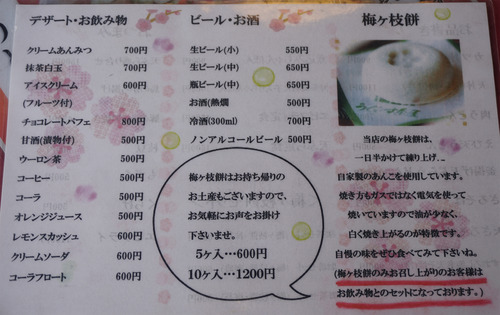 デザート・お飲み物
クリームあんみつ 700円
抹茶白玉 700円
アイスクリーム 600円
(フルーツ付)
チョコレートパフェ 800円
甘酒(漬物付) 500円
ウーロン茶 500円
コーヒー 500円
コーラ 500円
オレンジジュース 500円
レモンスカッシュ 600円
クリームソーダ 600円
コーラフロート 600円
ビール・お酒
生ビール(小) 550円
生ビール(中) 650円
瓶ビール(中) 650円
お酒(熱燗) 500円
冷酒(300ml) 700円
ノンアルコールビール 500円
梅ヶ枝餅はお持ち帰りの
お土産もございますので、
お気軽にお声をお掛け
下さいませ。
5ヶ入…600円
10ヶ入…1200円
梅ヶ枝餅
当店の梅ヶ枝餅は、
一日半かけて練り上げ、
自家製のあんこを使用しています。
焼き方もガスではなく電気を使って
焼いていますので油が少なく、
白く焼き上がるのが特徴です。
自慢の味をぜひ食べてみて下さいね。
(梅ヶ枝餅のみお召し上がりのお客様は
お飲み物とのセットになっております。)